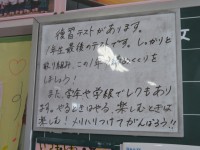 復習テストがあります。
1年生最後のテストです。しっかりと
取り組み、この1年のしめくくりを
しましょう！
また、学年や学級でレクもあり
ます。やるときはやる、楽しむときは
楽しむ！メリハリつけてがんばろう!!